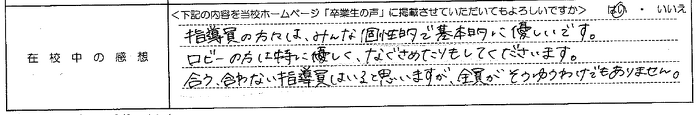 <下記の内容を当校ホームページ「卒業生の声」に掲載させていただいてもよろしいですか> はい ・ いいえ
在校中の感想
指導員の方々は、みんな個性的で基本的に優しいです。
ロビーの方は特に優しく、なぐさめたりもしてくださいます。
合う、合わない指導員はいると思いますが、全員がそうゆうわけでもありません。